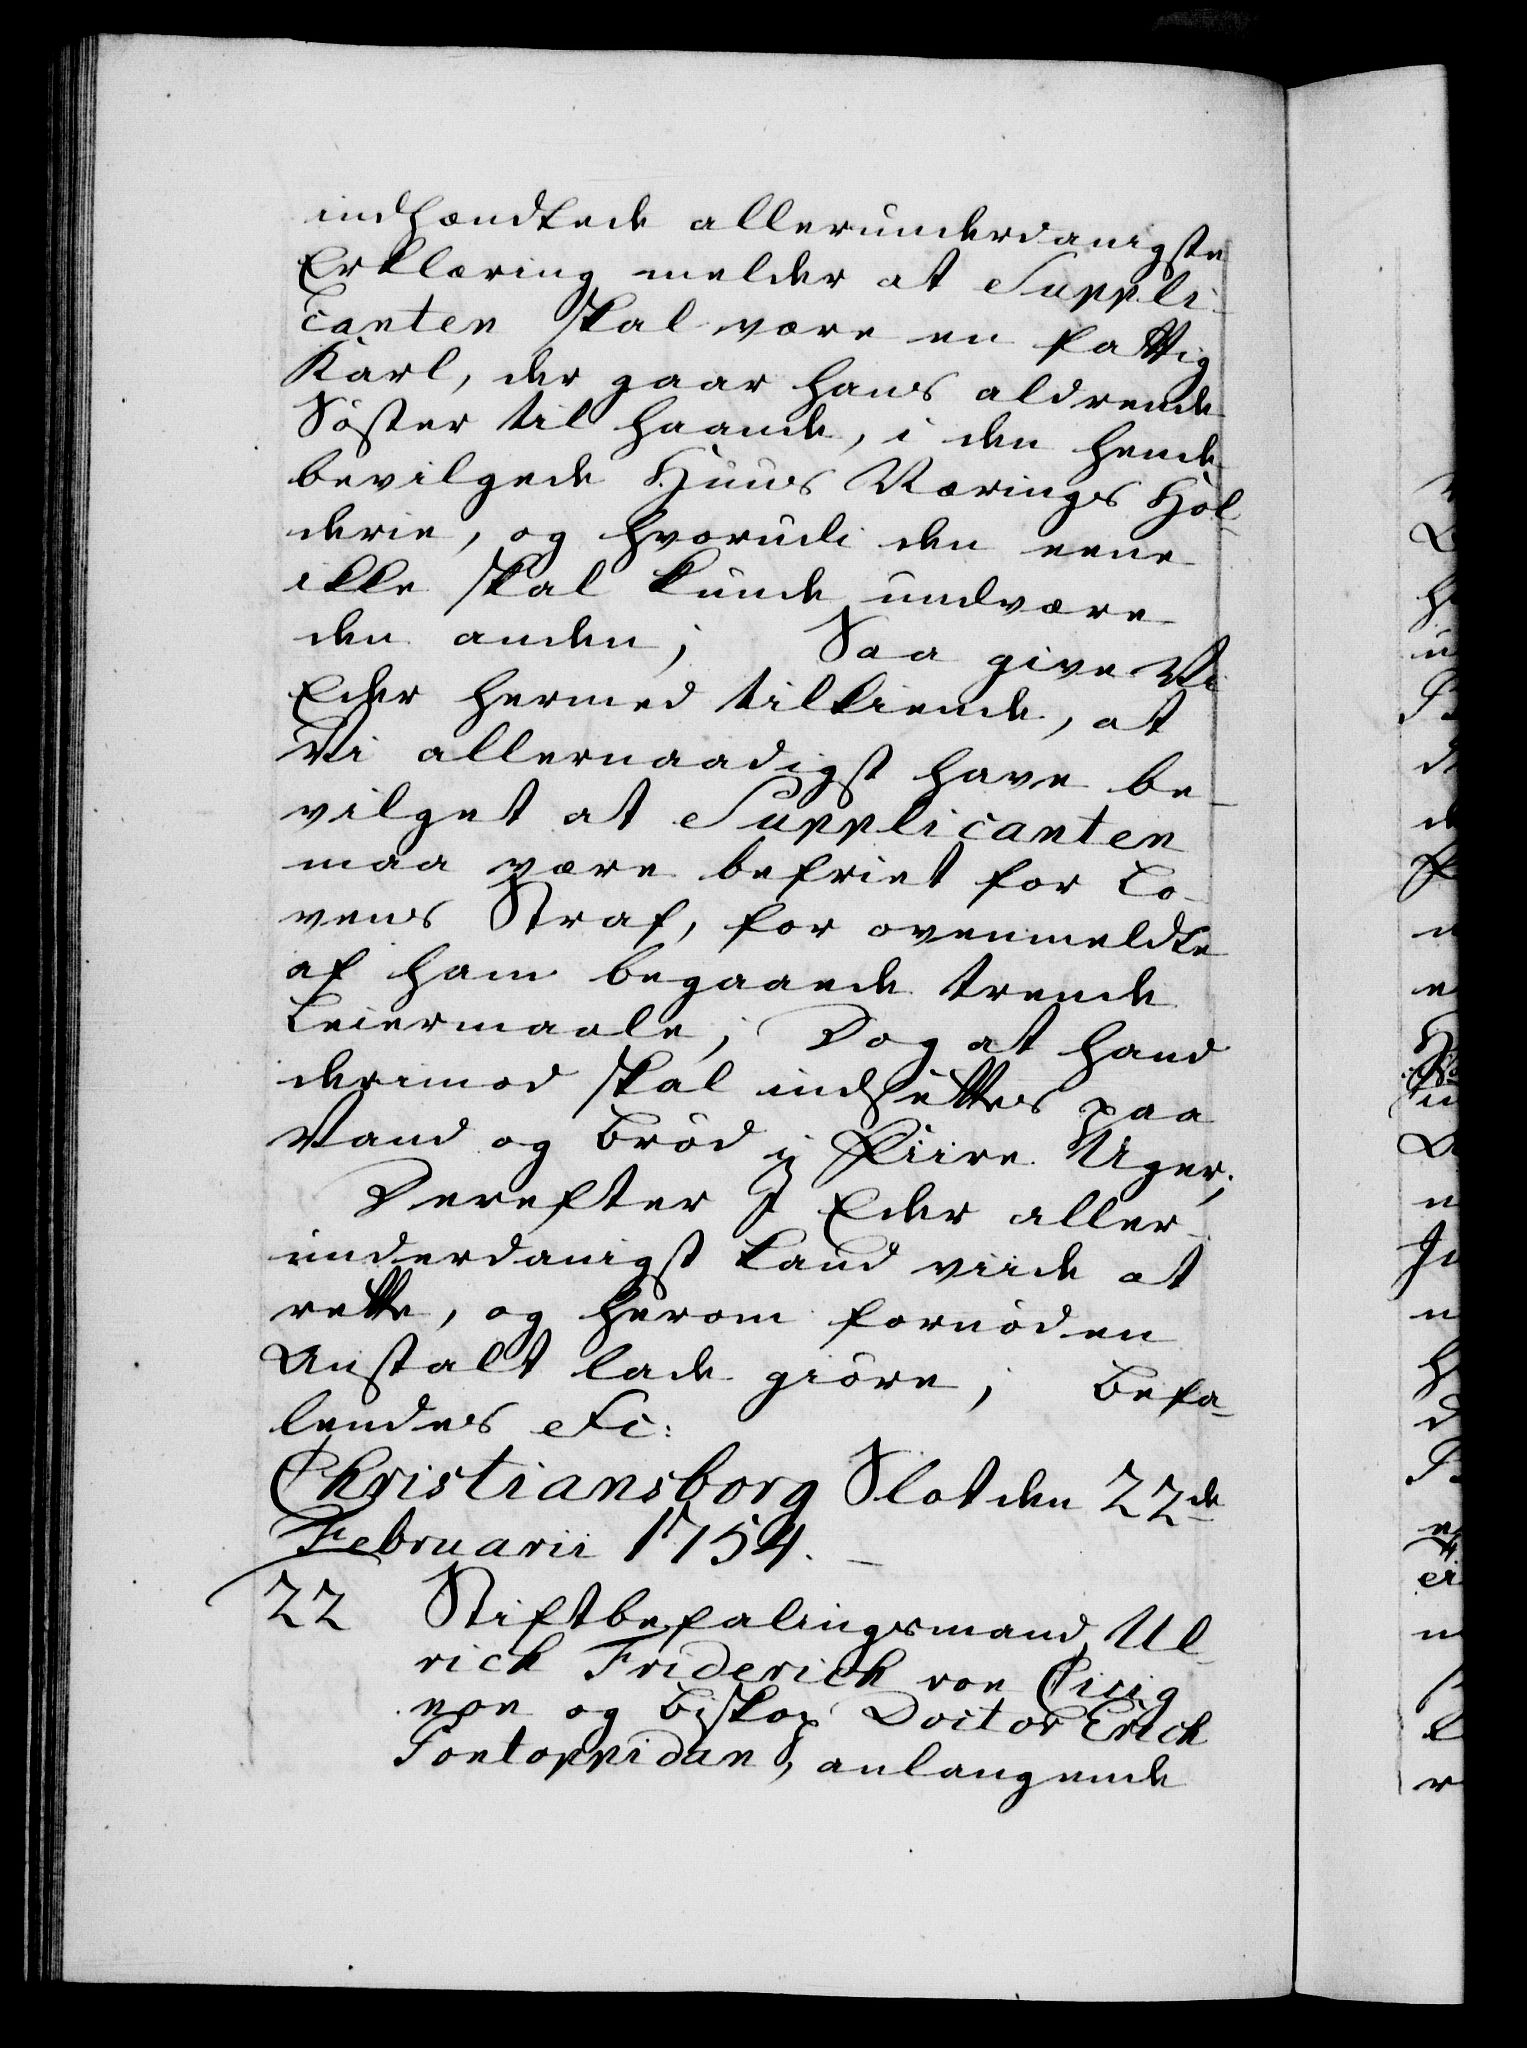 indhændtede allerunderdanigste
Erklæring melder at Suppli-
canten skal være en fattig
Karl, der gaar hans aldrende
Söster til haande, i den hende
bevilgede Huus Nærings Hol-
derie, og hvorudi den eene
ikke skal kunde undvære
den anden; Saa give Vi
Eder hermed tilkiende, at
Vi allernaadigst have be-
vilget at Supplicanten
maa være befriet for Lo-
vens Straf, for ovenmeldte
af ham begaaede trende
Leiermaale; Dog at hand
derimod skal indsættes paa
Vand og Bröd i fiire Uger;
Derefter I Eder aller-
underdanigst kand viide at
rette, og herom fornöden
Anstalt lade giöre; Befa-
lendes etc:
Christiansborg Slot den 22de
Februarii 1754. —
22 Stiftbefalingsmand Ul-
rich Friderich von Cicig-
non og Biskop Doctor Erich
Pontoppidan, anlangende